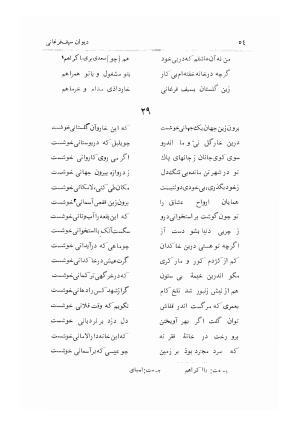 ٥٤ دیوان سیف‌فرغانی
من نه آن عاشقم که در پی خود هم [چو] سعدی بری اکراهم¹
گرچه در خانه خفته‌ام بی کار بتو مشغول و باتو همراهم
زین گلستان بسیف فرغانی خار دادی مدام و خرما هم
٢٩
برون زین جهان یک جهانی خوشست که این خار و آن گلستانی خوشست
درین خار گل نی و ما اندرو چو بلبل که در بوستانی خوشست
سوی کوی جانان زجانهای پاك اگر می روی کاروانی خوشست
تو در شهر تن ماندهٔ تنگ‌دل ز دروازه بیرون جهانی خوشست
ز خود بگذری بی خودی دولتیست مکان طی کنی لامکانی خوشست
همایان ارواح عشاق را برون زین قفس آسمانی² خوشست
تو چون گوشت بر استخوانی درو که این بقعه را آب و نانی خوشست
ز چربی دنیا بشو دست آز سگست آنک با استخوانی خوشست
اگرچه تو هستی درین خاکدان چو ماهی که در آبدانی خوشست
کم از کژدم کور و مار کری گرت عیش در خاکدانی خوشست
مگو اندرین خیمهٔ بی ستون که در خرگهی ترکمانی خوشست
که از نیش زنبور شد تلخ کام گر از شهد کس را دهانی خوشست
بعمری که مرگست اندر قفاش نگویم که وقت فلانی خوشست
توان گفت اگر بهر آویختن دل دزد بر نردبانی خوشست
برو رخت در خانهٔ فقر نه که این خانه دارالامانی خوشست
که مرد مجرد بود بر زمین چو عیسی که بر آسمانی خوشست